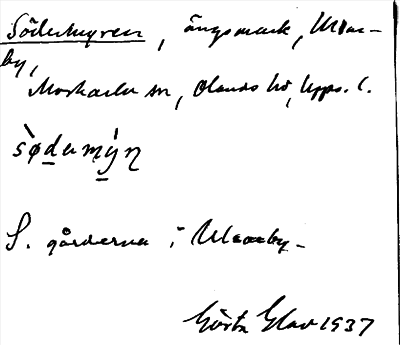 Södermyren, ängsmark, Ulvar-
by,
Morkarla sn, Olands hd, Upps. l.
sø̀dermýn
S. gårderna i Ulvarby.
Gösta Glav 1937